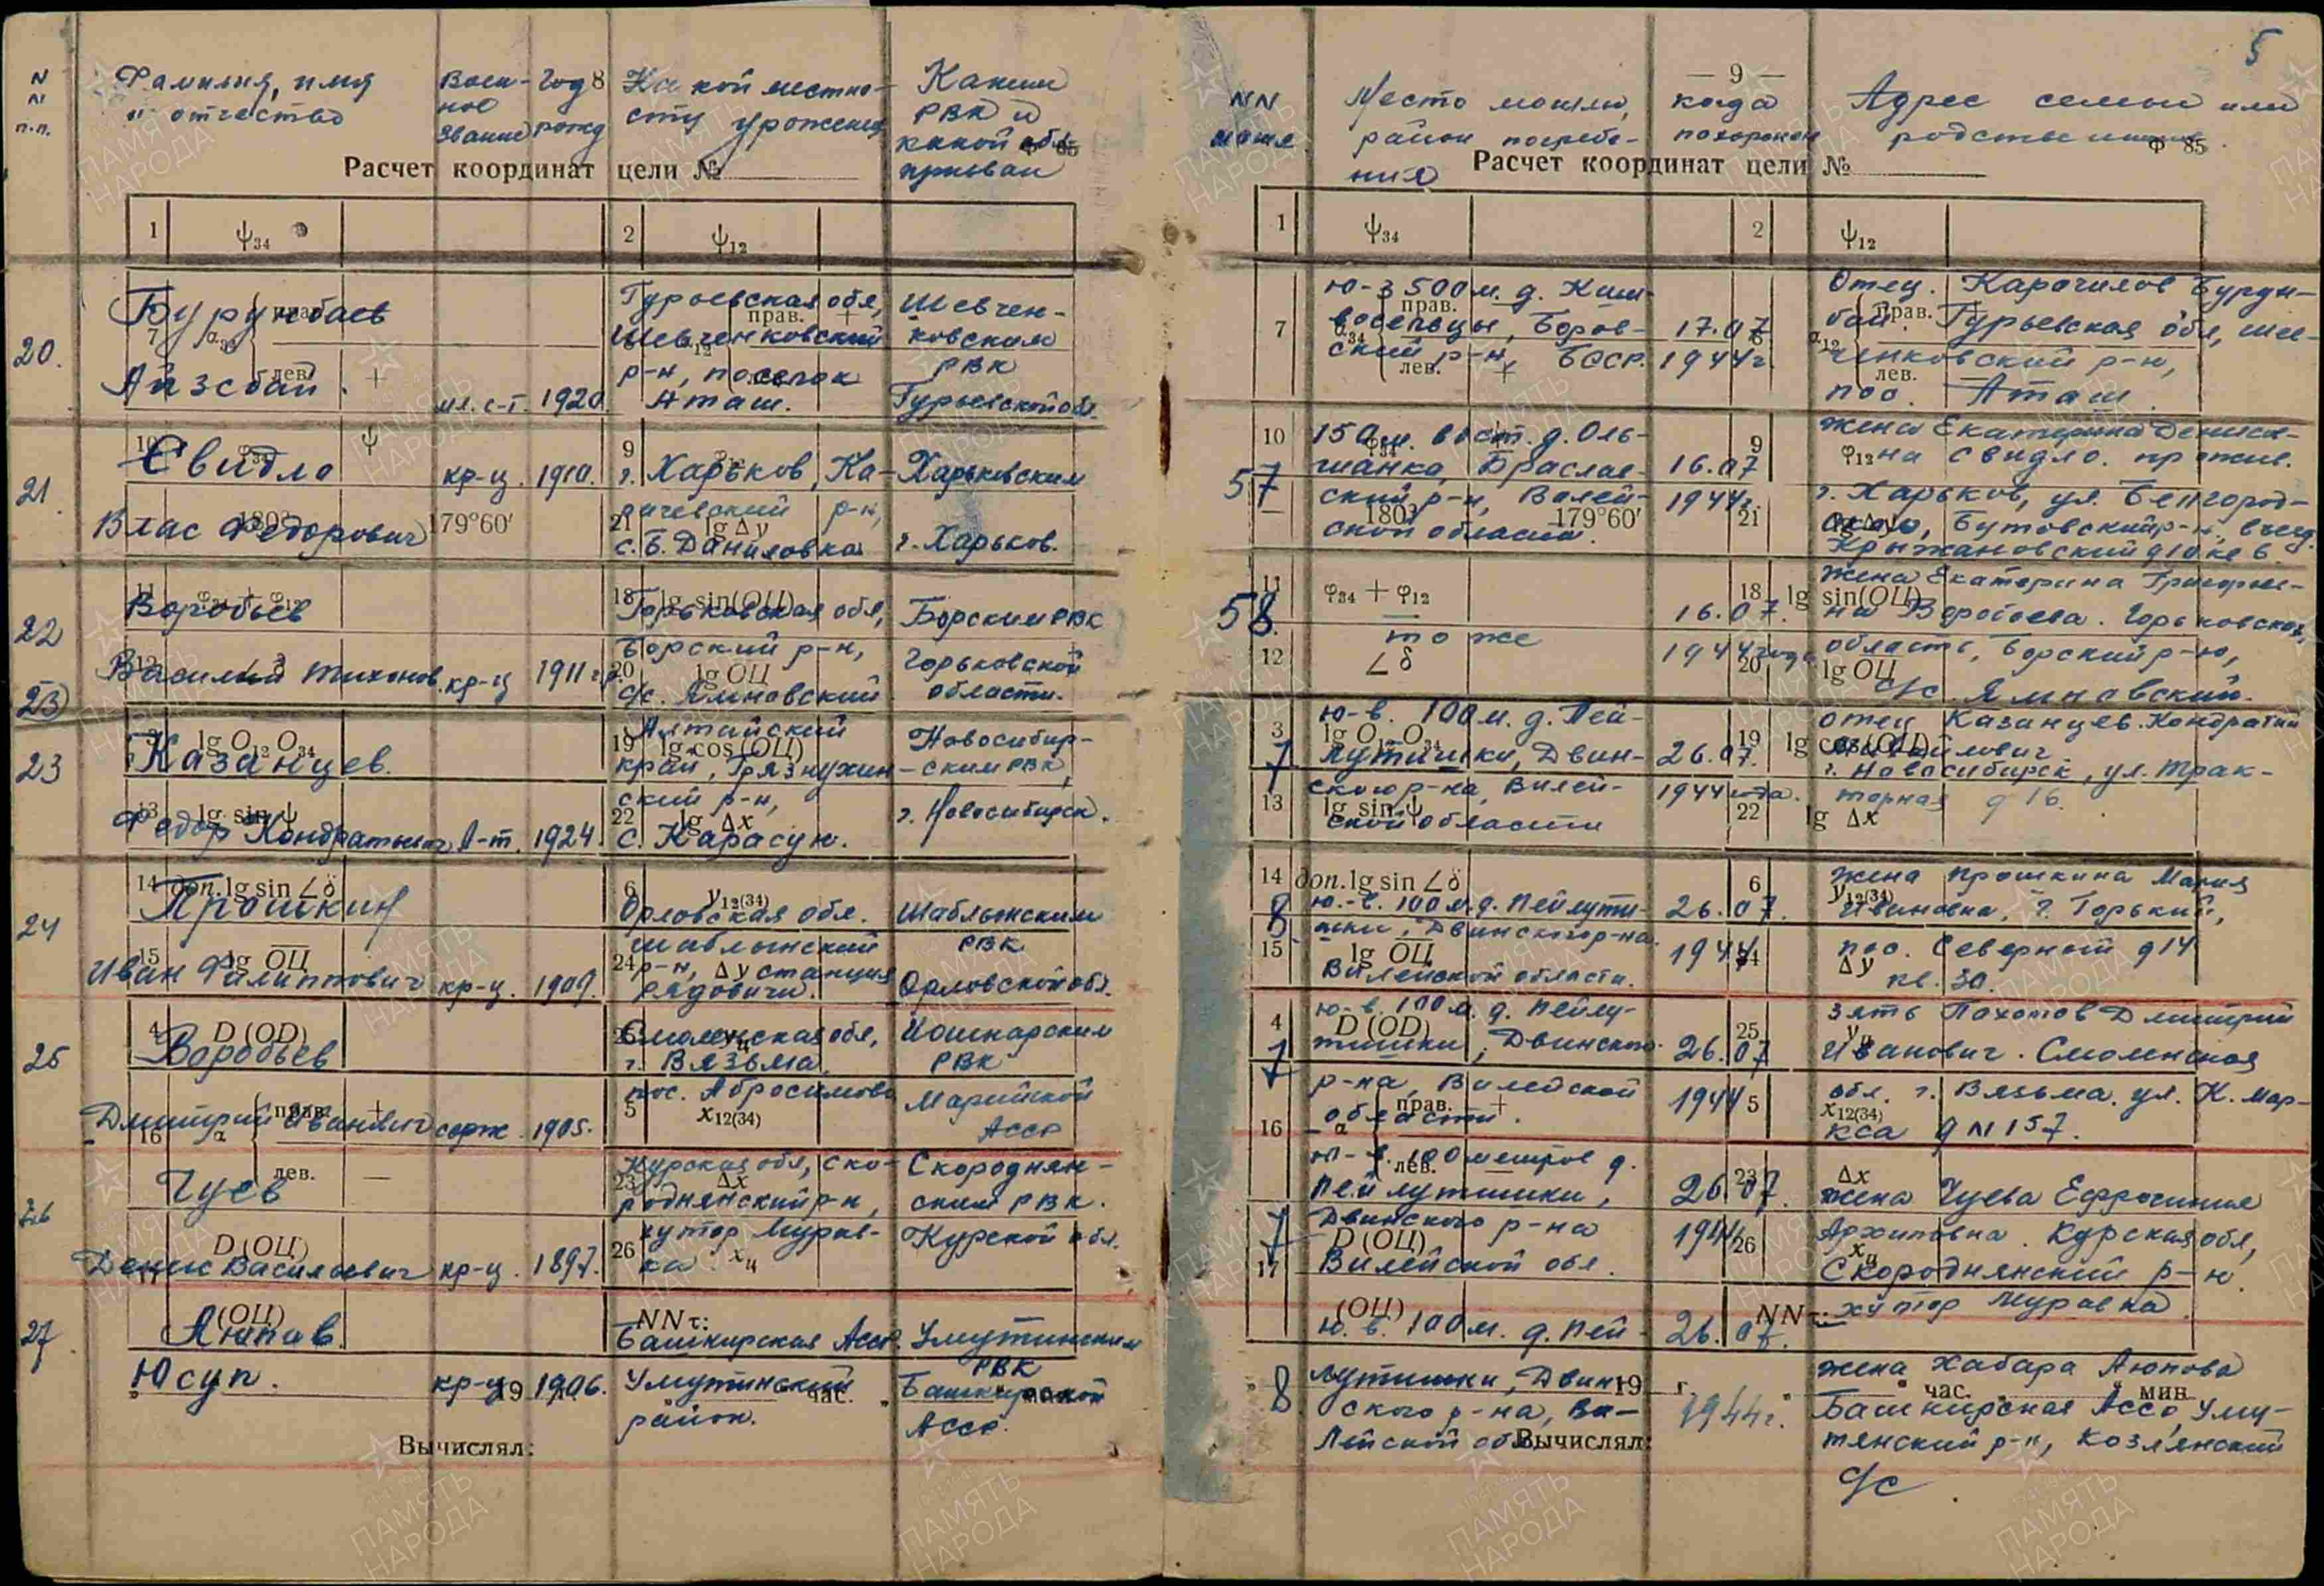 N
N
п.п.
Фамилия, имя
и отчество
Воен-
ное
звание
Год
рожд
8
Какой местно-
сти уроженец
Каким
РВК и
какой обл.
призван
Расчет координат цели №
1 ψ34 2 ψ12
20.
Бурунбаев
Айзсбай.
мл. с-т. 1920
Гурьевская обл,
Шевченковский
р-н, поселок
Аташ.
Шевчен-
ковским
РВК
Гурьевской обл.
21
Свидло
Влас Федорович
кр-ц. 1910.
г. Харьков, Ка-
ричевский р-н,
с. Б. Даниловка
Харьковским
г. Харьков.
179°60′
22
Воробьев
Василий Тихонов. кр-ц 1911 г.р.
Горьковская обл,
Борский р-н,
с/с. Ямновский
Борским РВК
Горьковской
области.
23
23
Казанцев.
Федор Кондратьевич Л-т. 1924
Алтайский
край, Грязнухин-
ский р-н,
с. Карасук.
Новосибир-
ским РВК,
г. Новосибирск.
24
Прошкин
Иван Филиппович кр-ц. 1909.
Орловская обл.
Шаблыкинский
р-н, станция
Рядовичи.
Шаблыкским
РВК
Орловской обл.
25
Воробьев
Дмитрий Иванович серж. 1905.
Смоленская обл,
г. Вязьма,
пос. Абросимово
Йошкарским
РВК
Марийской
АССР
26
Чуев
Денис Васильевич кр-ц. 1897.
Курская обл, Ско-
роднянский р-н,
хутор Мурав-
ка.
Скороднян-
ским РВК.
Курской обл.
27
Аюпов.
Юсуп.
кр-ц 1906.
NN т:
Башкирская Асср.
Умутинский
район.
Умутинским
РВК
Башкирской
АССР.
19
час.
Вычислял:
5
— 9 —
NN
могил
Место могилы,
район погребе-
ния
когда
похоронен
Адрес семьи или
родственников
Ф 85
Расчет координат цели №
1 ψ34 2 ψ12
Ю-З 500 м. д.
Боров-
ский р-н, БССР.
17.07
1944 г.
Отец. Карачилов Бурун-
бай. Гурьевская обл, Шев-
ченковский р-н,
пос. Аташ.
57
150 м. вост. д. Оль-
шанка, Браслав-
ский р-н, Вилей-
ской области.
16.07
1944 г.
жена Екатерина Дениси-
на Свидло. прожив.
г. Харьков, ул. Белгород-
ская, Бутовский р-н, въезд
Крыжановский д 10 кв 6.
179°60′
58.
то же
16.07.
1944 года
жена Екатерина Григорьев-
на Воробьева. Горьковская
область, Борский р-н,
с/с. Ямновский.
7
Ю-в. 100 м. д. Пей-
лутишки, Двин-
ского р-на, Вилей-
ской области
26.07.
1944 года.
отец Казанцев Кондратий
г. Новосибирск, ул. Трак-
торная д 16.
8
ю.-в. 100 м. д. Пейлути-
шки, Двинского р-на.
Вилейской области.
26.07.
1944
жена Прошкина Мария
Ивановна, г. Горький,
пос. Северный д 14
кв. 30.
7
Ю-в. 100 м. д. Пейлу-
тишки, Двинского
р-на, Вилейской
области.
26.07
1944
зять Пахотов Дмитрий
Иванович. Смоленская
обл. г. Вязьма. ул. К. Мар-
кса д N 157.
7
Ю-в. 100 метров д.
Пейлутишки,
Двинского р-на
Вилейской обл.
26.07.
1944
жена Чуева Ефросиния
Архиповна. Курская обл,
Скороднянский р-н.
хутор Муравка
8
Ю.в. 100 м. д. Пей-
лутишки, Двин-
ского р-на, Ви-
лейской обл.
26.07.
1944 г.
жена Хабара Аюпова
Башкирская Ассо, Уму-
тинский р-н, Козлянский
с/с.
19 г.
час. мин
Вычислял: